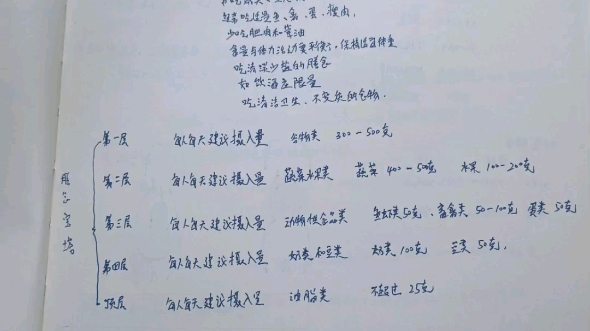 经常吃适量鱼、禽、蛋、瘦肉,
少吃肥肉和荤油
食量与体力活动要平衡,保持适宜体重
吃清淡少盐的膳食
如饮酒应限量
吃清洁卫生、不变质的食物.
膳食宝塔
第一层 每人每天建议摄入量 谷物类 300-500克
第二层 每人每天建议摄入量 蔬菜水果类 蔬菜 400-500克 水果 100-200克
第三层 每人每天建议摄入量 动物性食品类 鱼虾类50克、畜禽类 50-100克 蛋类 50克
第四层 每人每天建议摄入量 奶类和豆类 奶类 100克 豆类 50克,
顶层 每人每天建议摄入量 油脂类 不超过 25克